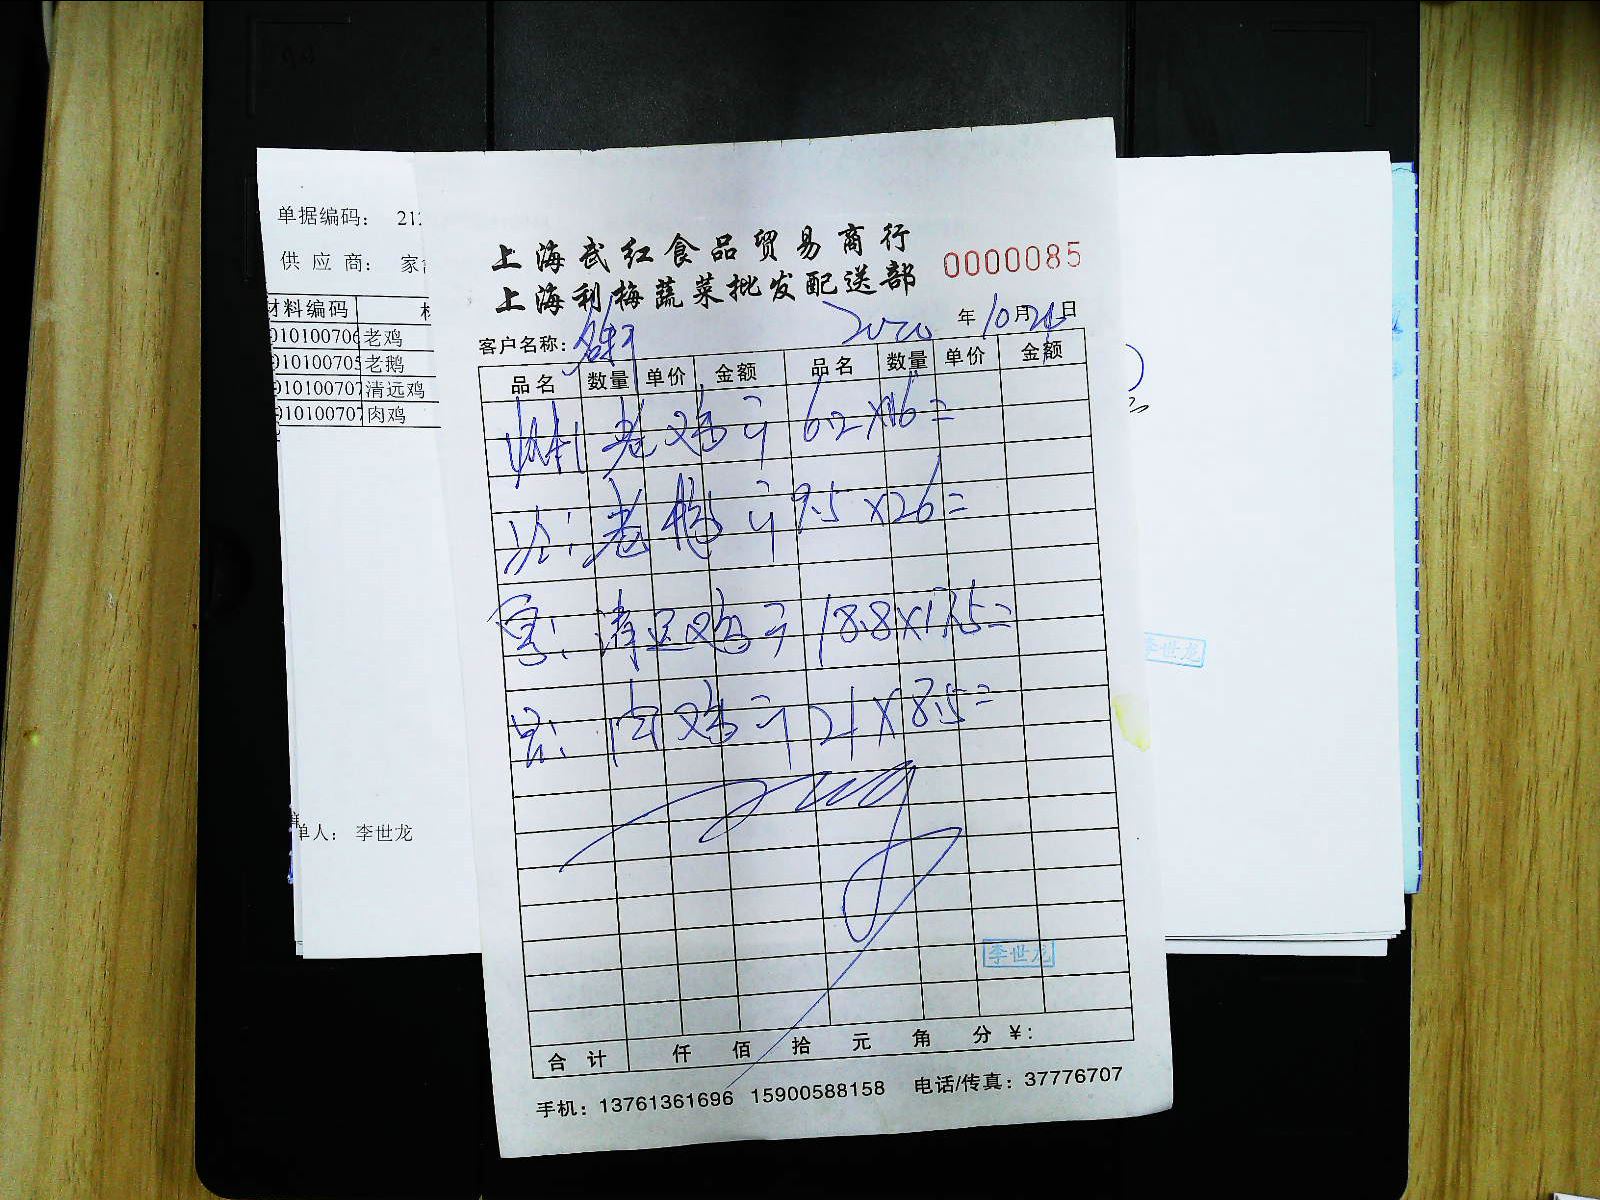 单据编码： 212
供 应 商： 家禽
材料编码
010100706 老鸡
010100705 老鹅
010100707 清远鸡
010100707 肉鸡
单人： 李世龙
上海武红食品贸易商行
上海利梅蔬菜批发配送部
0000085
客户名称：
2020 年 10 月 日
品名 数量 单价 金额 品名 数量 单价 金额
老鸡 6.2×16=
老鹅 9.5×26=
清远鸡 18.8×17.5=
肉鸡 21×8.5=
李世龙
合 计 仟 佰 拾 元 角 分 ￥：
手机：13761361696 15900588158 电话/传真：37776707
李世龙